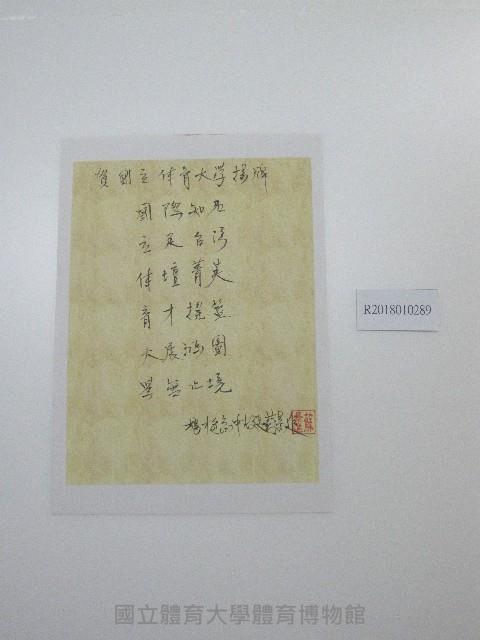 賀國立体育大学揚牌
國際知名
立足台湾
体壇菁英
育才搖籃
大展鴻圖
學無止境
蘇
R2018010289
國立體育大學體育博物館